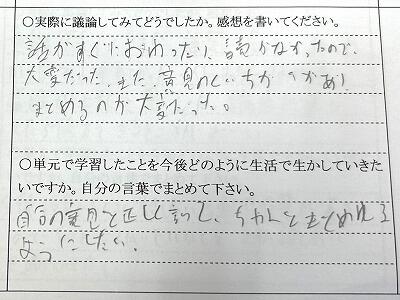 ○実際に議論してみてどうでしたか。感想を書いてください。
話がすぐにおわったり、続かなかったので、
大変だった。また、意見のくいちがいがあり
まとめるのが大変だった。
○単元で学習したことを今後どのように生活で生かしていきた
いですか。自分の言葉でまとめて下さい。
自分の意見を正しく言って、ちゃんとまとめれる
ようにしたい。